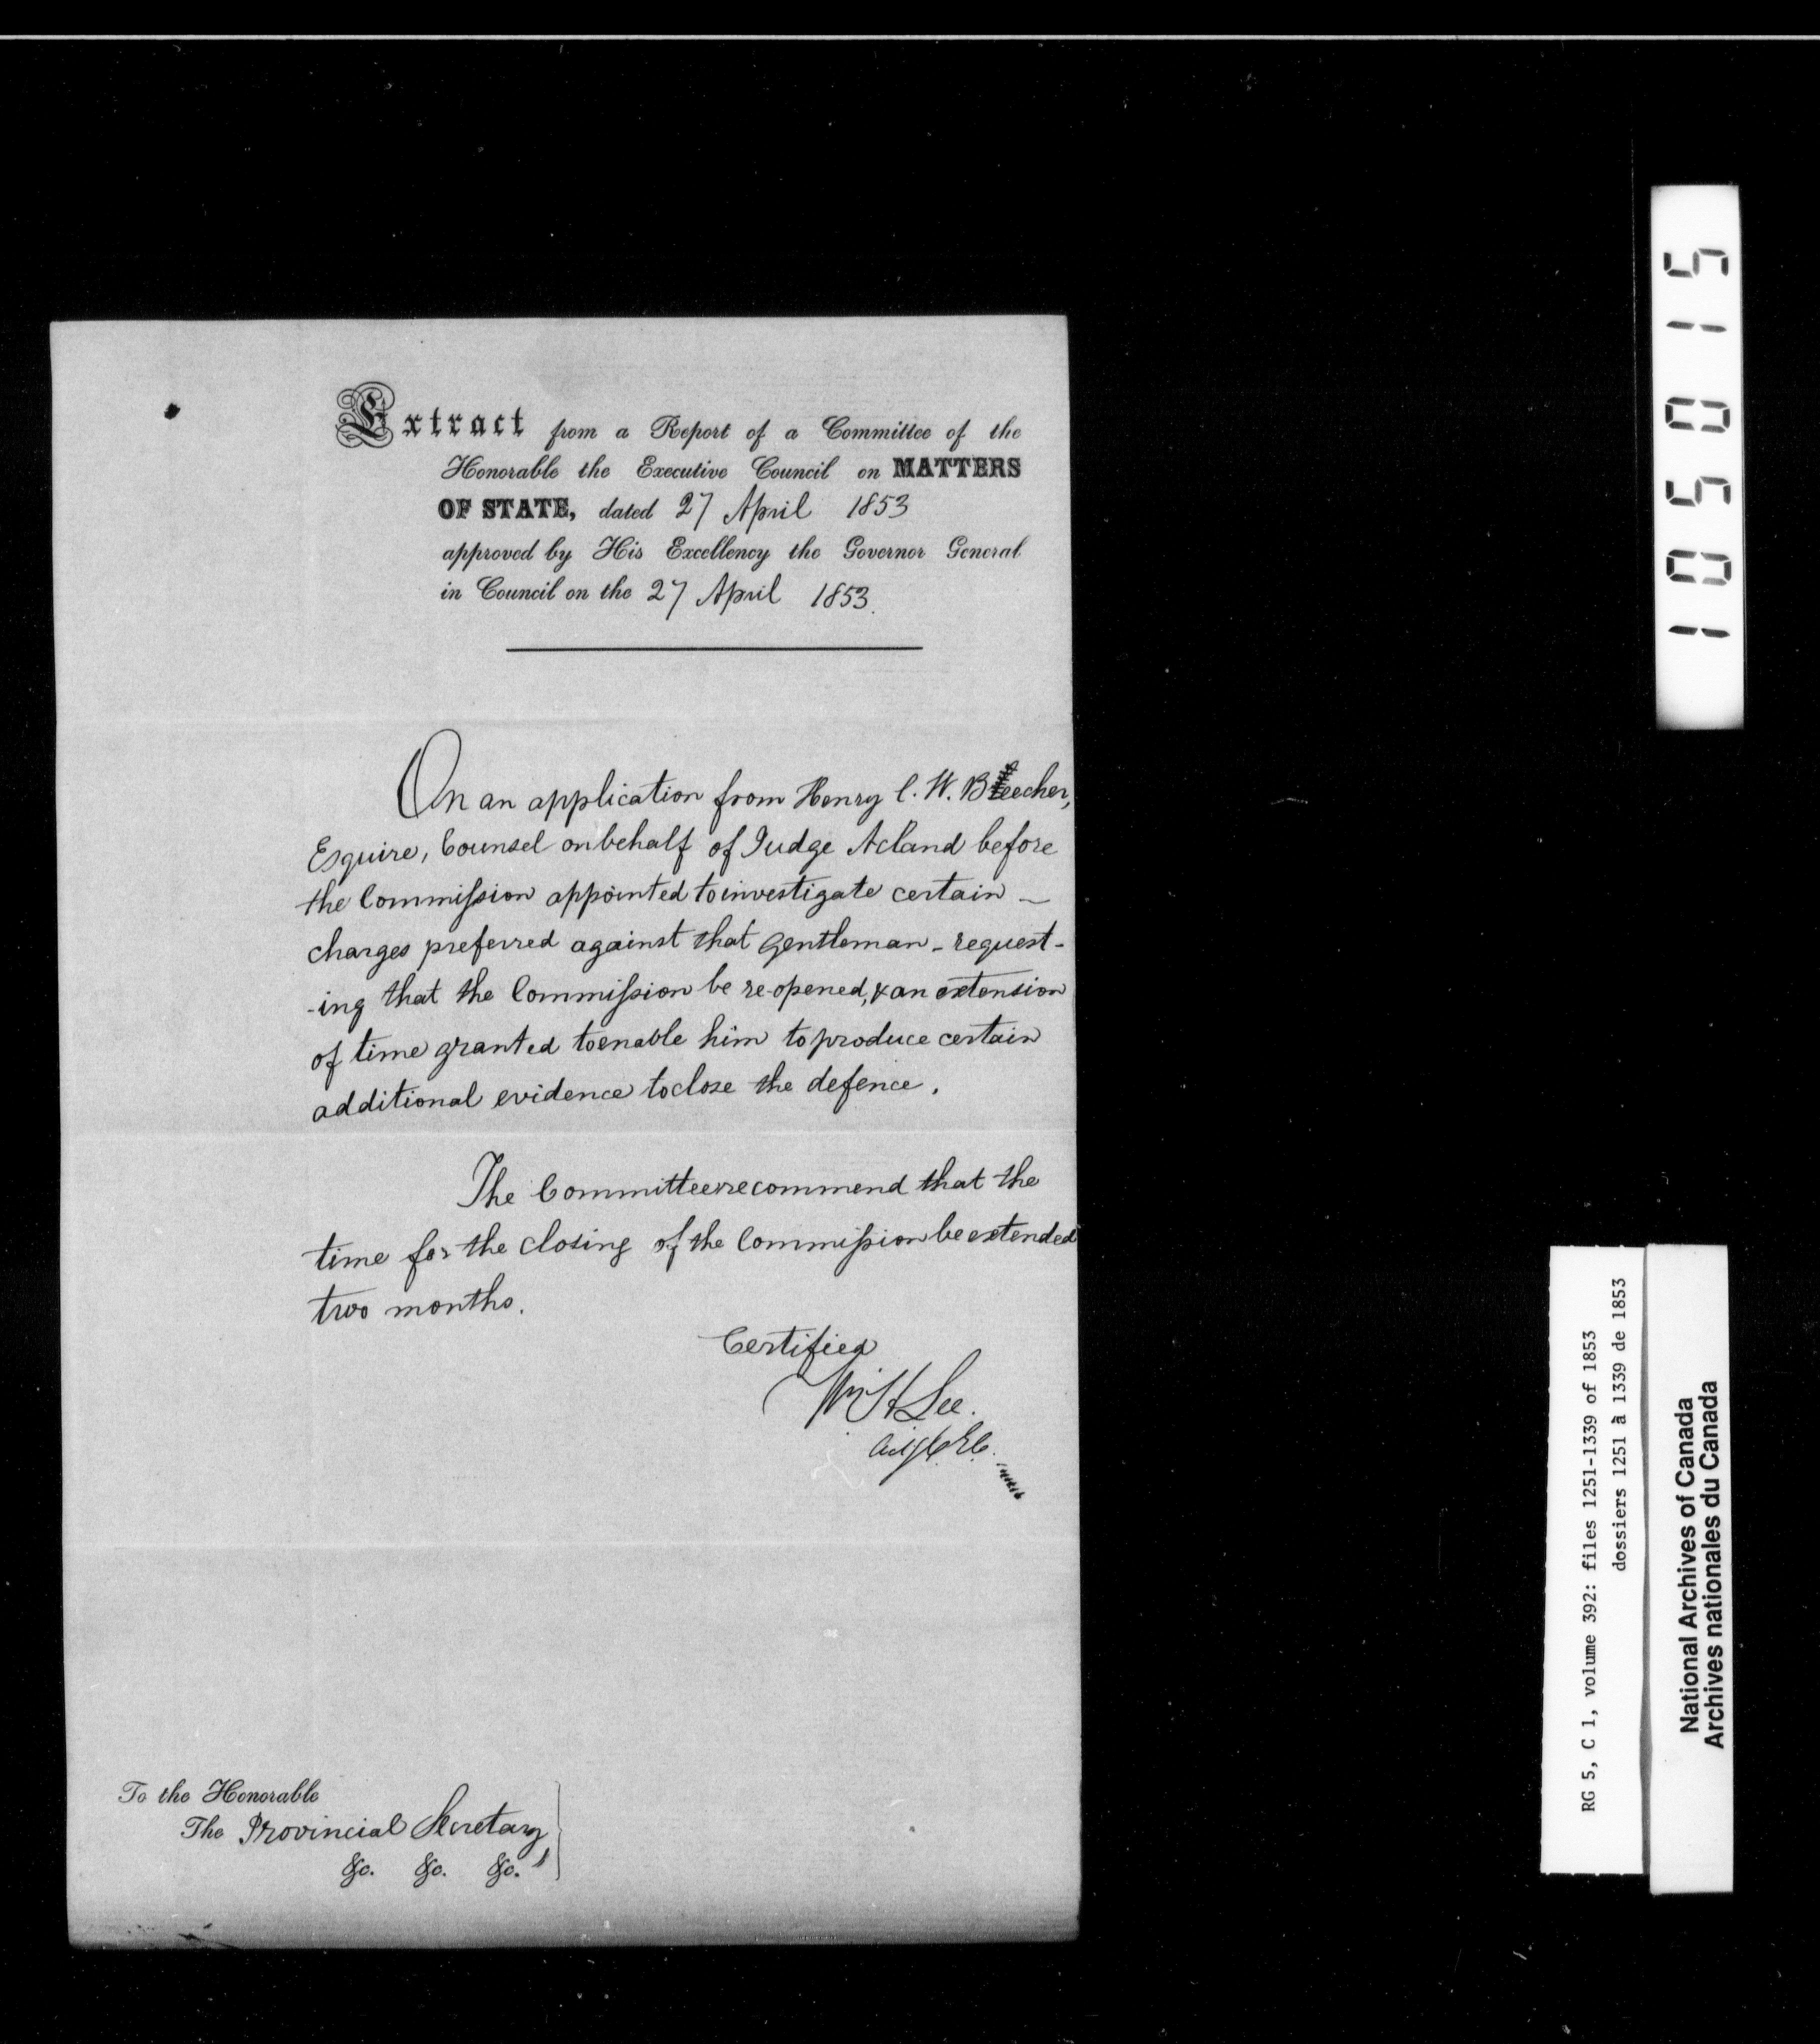 Extract from a Report of a Committee of the
Honorable the Executive Council on MATTERS
OF STATE, dated 27 April 1853
approved by His Excellency the Governor General
in Council on the 27 April 1853.
On an application from Henry C. W. Beecher,
Esquire, Counsel on behalf of Judge Acland before
the Commission appointed to investigate certain
charges preferred against that Gentleman - request-
-ing that the Commission be re-opened, & an extension
of time granted to enable him to produce certain
additional evidence to close the defence.
The Committee recommend that the
time for the closing of the Commission be extended
two months.
Certified
Wm H Lee.
Actg C. E. C.
To the Honorable
The Provincial Secretary
&c. &c. &c.
105015
RG 5, C 1, volume 392: files 1251-1339 of 1853
dossiers 1251 à 1339 de 1853
National Archives of Canada
Archives nationales du Canada